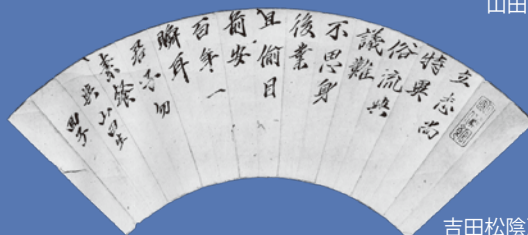 山田
立志尚
特異
俗流與
議難
不思身
後業
且偷目
前安
百年一
瞬耳
君子勿
素餐
與山田生
吉田松陰